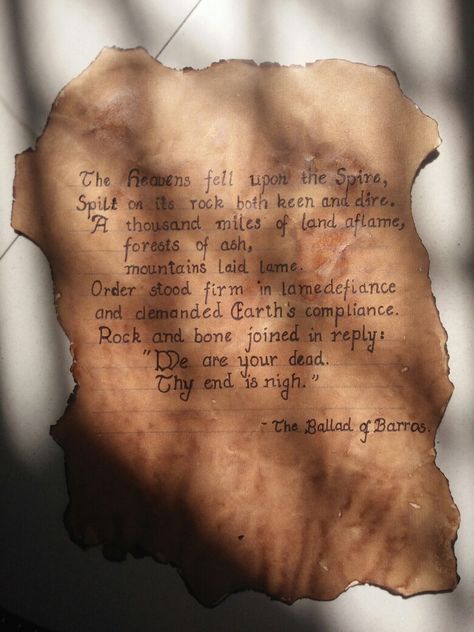 The Heavens fell upon the Spire,
Spilt on its rock both keen and dire.
A thousand miles of land aflame,
forests of ash,
mountains laid lame.
Order stood firm in lame defiance
and demanded Earth's compliance.
Rock and bone joined in reply:
"We are your dead.
Thy end is nigh."
- The Ballad of Barros.